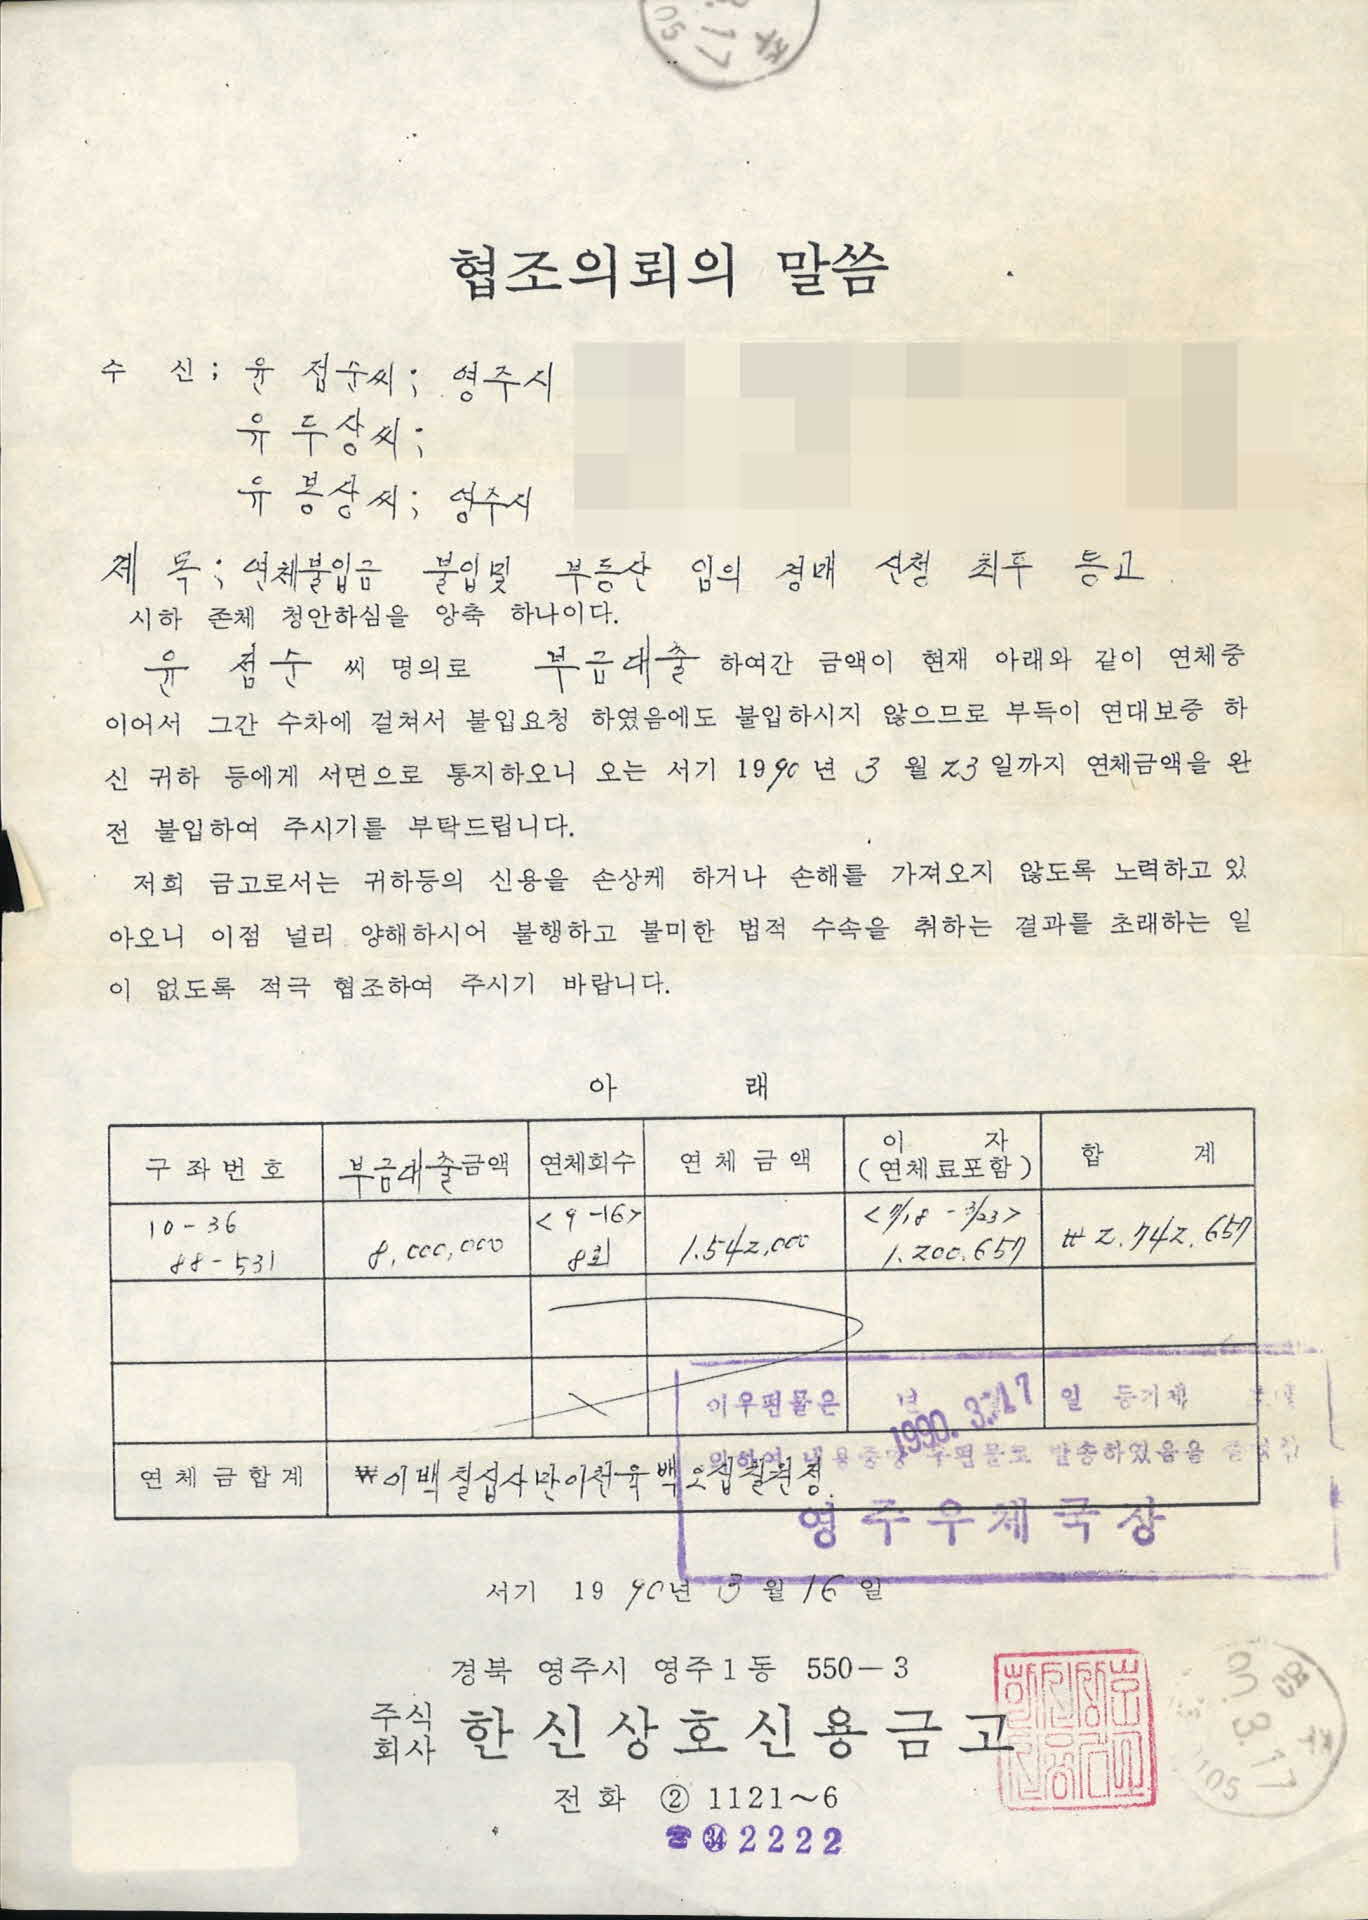 협조의뢰의 말씀
수 신; 윤 점순씨; 영주시
유 두상씨;
유 봉상씨; 영주시
제 목; 연체불입금 불입및 부동산 임의 경매 신청 최후 통고
시하 존체 청안하심을 앙축 하나이다.
윤 점순 씨 명의로 부금대출 하여간 금액이 현재 아래와 같이 연체중
이어서 그간 수차에 걸쳐서 불입요청 하였음에도 불입하시지 않으므로 부득이 연대보증 하
신 귀하 등에게 서면으로 통지하오니 오는 서기 1990년 3월 23일까지 연체금액을 완
전 불입하여 주시기를 부탁드립니다.
저희 금고로서는 귀하등의 신용을 손상케 하거나 손해를 가져오지 않도록 노력하고 있
아오니 이점 널리 양해하시어 불행하고 불미한 법적 수속을 취하는 결과를 초래하는 일
이 없도록 적극 협조하여 주시기 바랍니다.
아 래
구좌번호 부금대출금액 연체회수 연체금액 이 자 (연체료포함) 합 계
10-36 <9-16> <7/18 - 3/23>
88-531 8,000,000 8회 1.542,000 1.200.657 ₩2.742.657
이우편물은 년 월 일 등기제
1990. 3. 17
의하여 내용증명 우편물로 발송하였음을
연체금합계 ₩이백칠십사만이천육백오십칠원정.
영주우체국장
서기 1990년 3월 16일
경북 영주시 영주1동 550-3
주식회사 한신상호신용금고
전화 ② 1121~6
☎ ㉞ 2222
영주
90. 3. 17
105